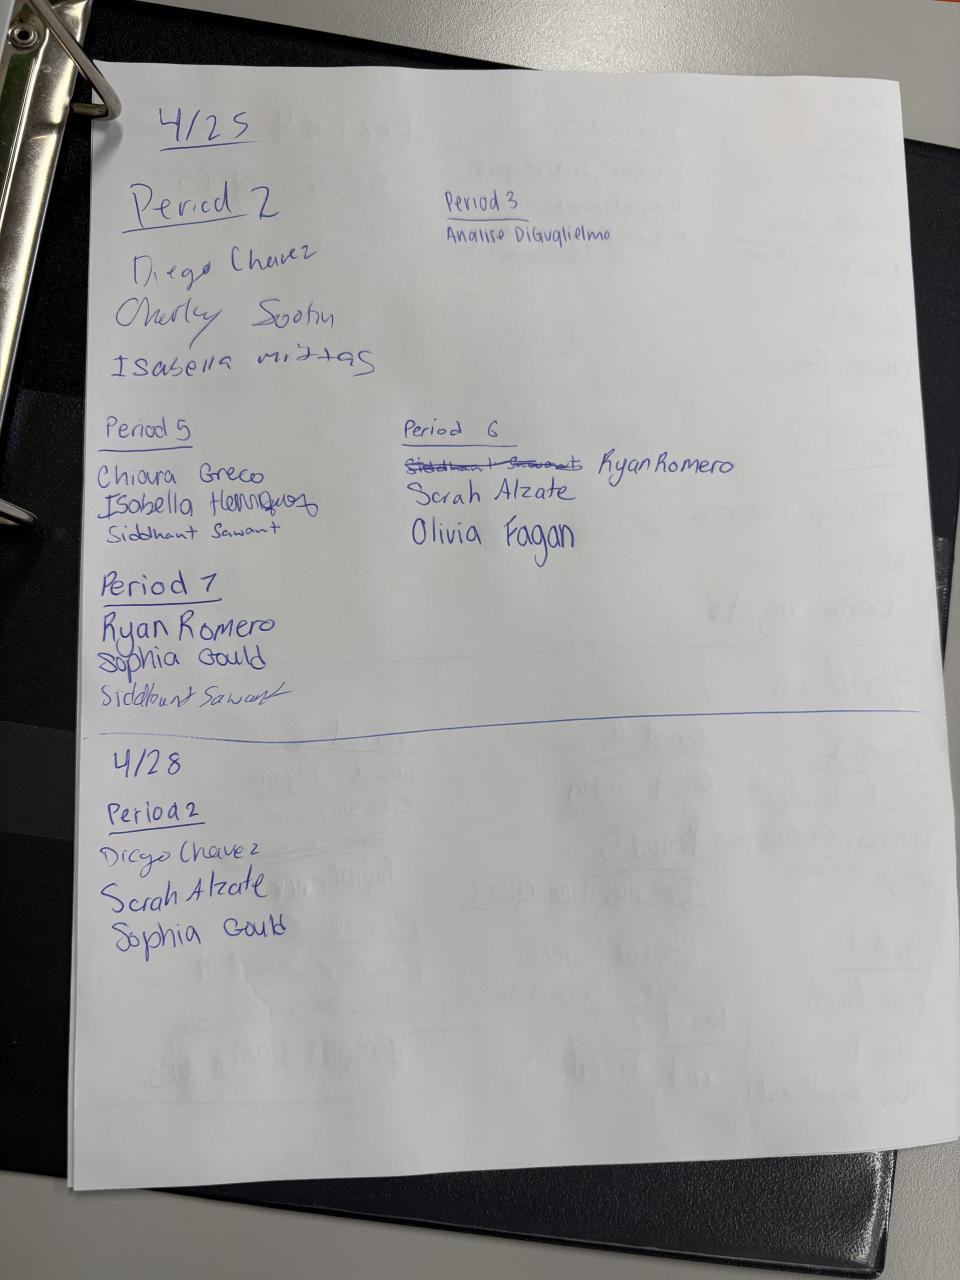 4/25
Period 2
Diego Chavez
Charley
Isabella
Period 3
Analise DiGuglielmo
Period 5
Chiara Greco
Isabella Henriquez
Siddhant Sawant
Period 6
Siddhant Sawant Ryan Romero
Sarah Alzate
Olivia Fagan
Period 7
Ryan Romero
Sophia Gould
Siddhant Sawant
4/28
Period 2
Diego Chavez
Sarah Alzate
Sophia Gould